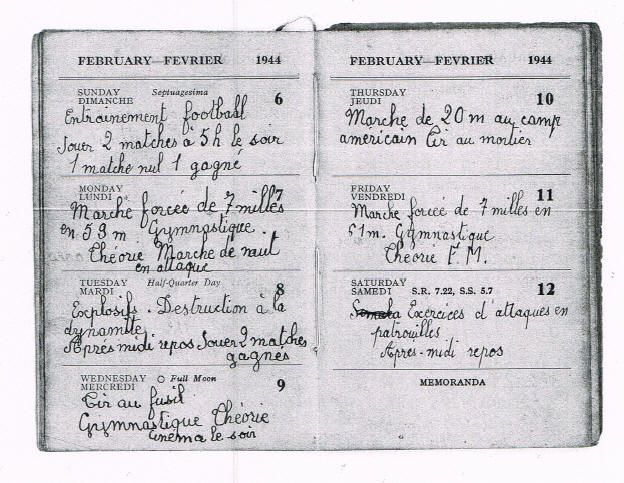 FEBRUARY—FEVRIER 1944
SUNDAY Septuagesima
DIMANCHE 6
Entrainement football
Jouer 2 matches à 5h le soir
1 matche nul 1 gagné
MONDAY
LUNDI 7
Marche forcée de 7 milles
en 53 m Gymnastique.
Théorie Marche de nuit
en attaque
TUESDAY Half-Quarter Day
MARDI 8
Explosifs. Destruction à la
dynamite
Après midi repos Jouer 2 matches
gagnés
WEDNESDAY O Full Moon
MERCREDI 9
Tir au fusil
Gymnastique Théorie
Cinema le soir
FEBRUARY—FEVRIER 1944
THURSDAY
JEUDI 10
Marche de 20 m au camp
américain Tir au mortier
FRIDAY
VENDREDI 11
Marche forcée de 7 milles en
51m. Gymnastique
Théorie F.M.
SATURDAY
SAMEDI S.R. 7.22, S.S. 5.7 12
Exercices d'attaques en
patrouilles
Apres-midi repos
MEMORANDA